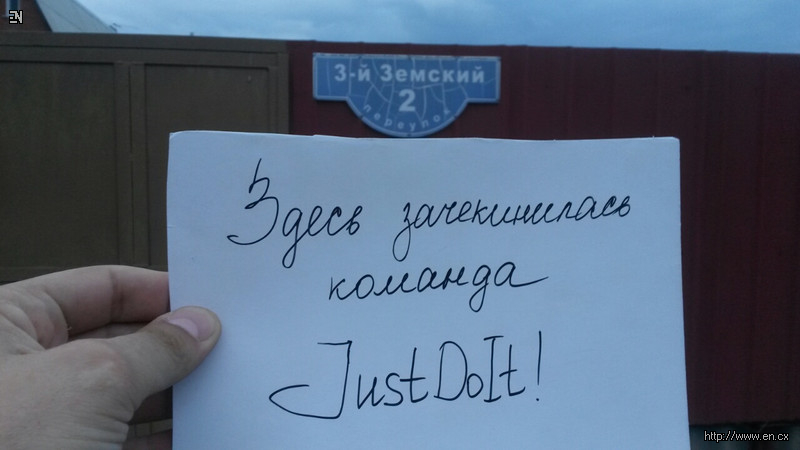 EN
3-й Земский
2
переулок
Здесь зачекинилась
команда
JustDoIt!
http://www.en.cx